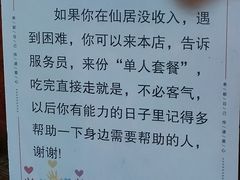 如果你在仙居没收入，遇
到困难，你可以来本店，告诉
服务员，来份“单人套餐”，
吃完直接走就是，不必客气，
以后你有能力的日子里记得多
帮助一下身边需要帮助的人，
谢谢！